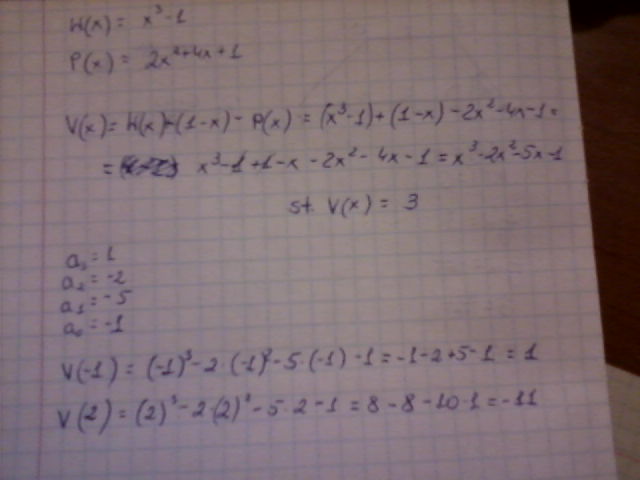 W(x) = x³-1
P(x) = 2x²+4x+1
V(x) = W(x)+(1-x) - P(x) = (x³-1)+(1-x) -2x²-4x-1 =
= x³-1+1-x -2x²-4x-1 = x³-2x²-5x-1
st. V(x) = 3
a₃ = 1
a₂ = -2
a₁ = -5
a₀ = -1
V(-1) = (-1)³-2·(-1)²-5·(-1)-1 = -1-2+5-1 = 1
V(2) = (2)³-2·(2)²-5·2-1 = 8-8-10-1 = -11